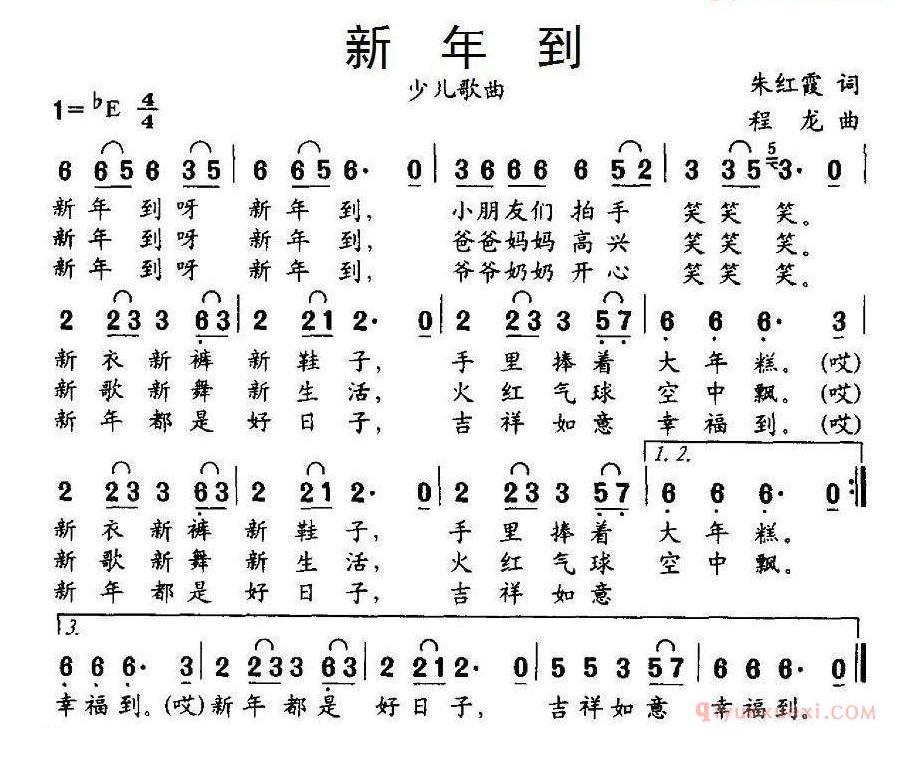 新 年 到
少儿歌曲
朱红霞 词
1=♭E 4/4
程 龙 曲
6 6 5 6 3 5 | 6 6 5 6· 0 | 3 6 6 6 6 5 2 | 3 3 5 5 3· 0 |
新 年 到 呀 新 年 到, 小朋友们 拍 手 笑 笑 笑。
新 年 到 呀 新 年 到, 爸爸妈妈 高 兴 笑 笑 笑。
新 年 到 呀 新 年 到, 爷爷奶奶 开 心 笑 笑 笑。
2 2 3 3 6 3 | 2 2 1 2· 0 | 2 2 3 3 5 7 | 6 6 6· 3 |
新 衣 新 裤 新 鞋 子, 手 里 捧 着 大 年 糕。(哎)
新 歌 新 舞 新 生 活, 火 红 气 球 空 中 飘。(哎)
新 年 都 是 好 日 子, 吉 祥 如 意 幸 福 到。(哎)
1. 2.
2 2 3 3 6 3 | 2 2 1 2· 0 | 2 2 3 3 5 7 | 6 6 6· 0 :‖
新 衣 新 裤 新 鞋 子, 手 里 捧 着 大 年 糕。
新 歌 新 舞 新 生 活, 火 红 气 球 空 中 飘。
新 年 都 是 好 日 子, 吉 祥 如 意
3.
6 6 6· 3 | 2 2 3 3 6 3 | 2 2 1 2· 0 | 5 5 3 5 7 | 6 6 6· 0 ‖
幸 福 到。(哎) 新 年 都 是 好 日 子, 吉 祥 如 意 幸 福 到。